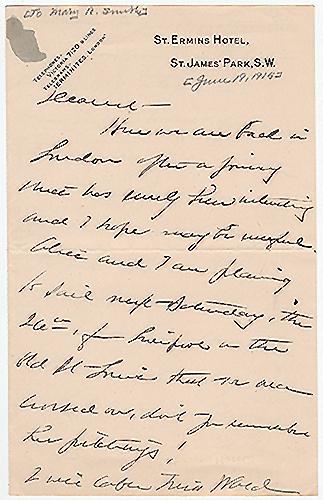 [To Mary R. Smith]
ST. ERMINS HOTEL,
ST. JAMES' PARK, S.W.
TELEPHONE:
VICTORIA 7120 8 LINES
TELEGRAMS:
"ERMINITES, LONDON"
[June 19, 1915]
Dearest —
Here we are back in
London after a journey
that has been interesting
and I hope may be useful.
Alice and I are planning
to sail next Saturday, the
26th, from Liverpool on the
Old St. Louis that we
crossed on, don't you remember
the pitchings!
I will cable Miss Wald